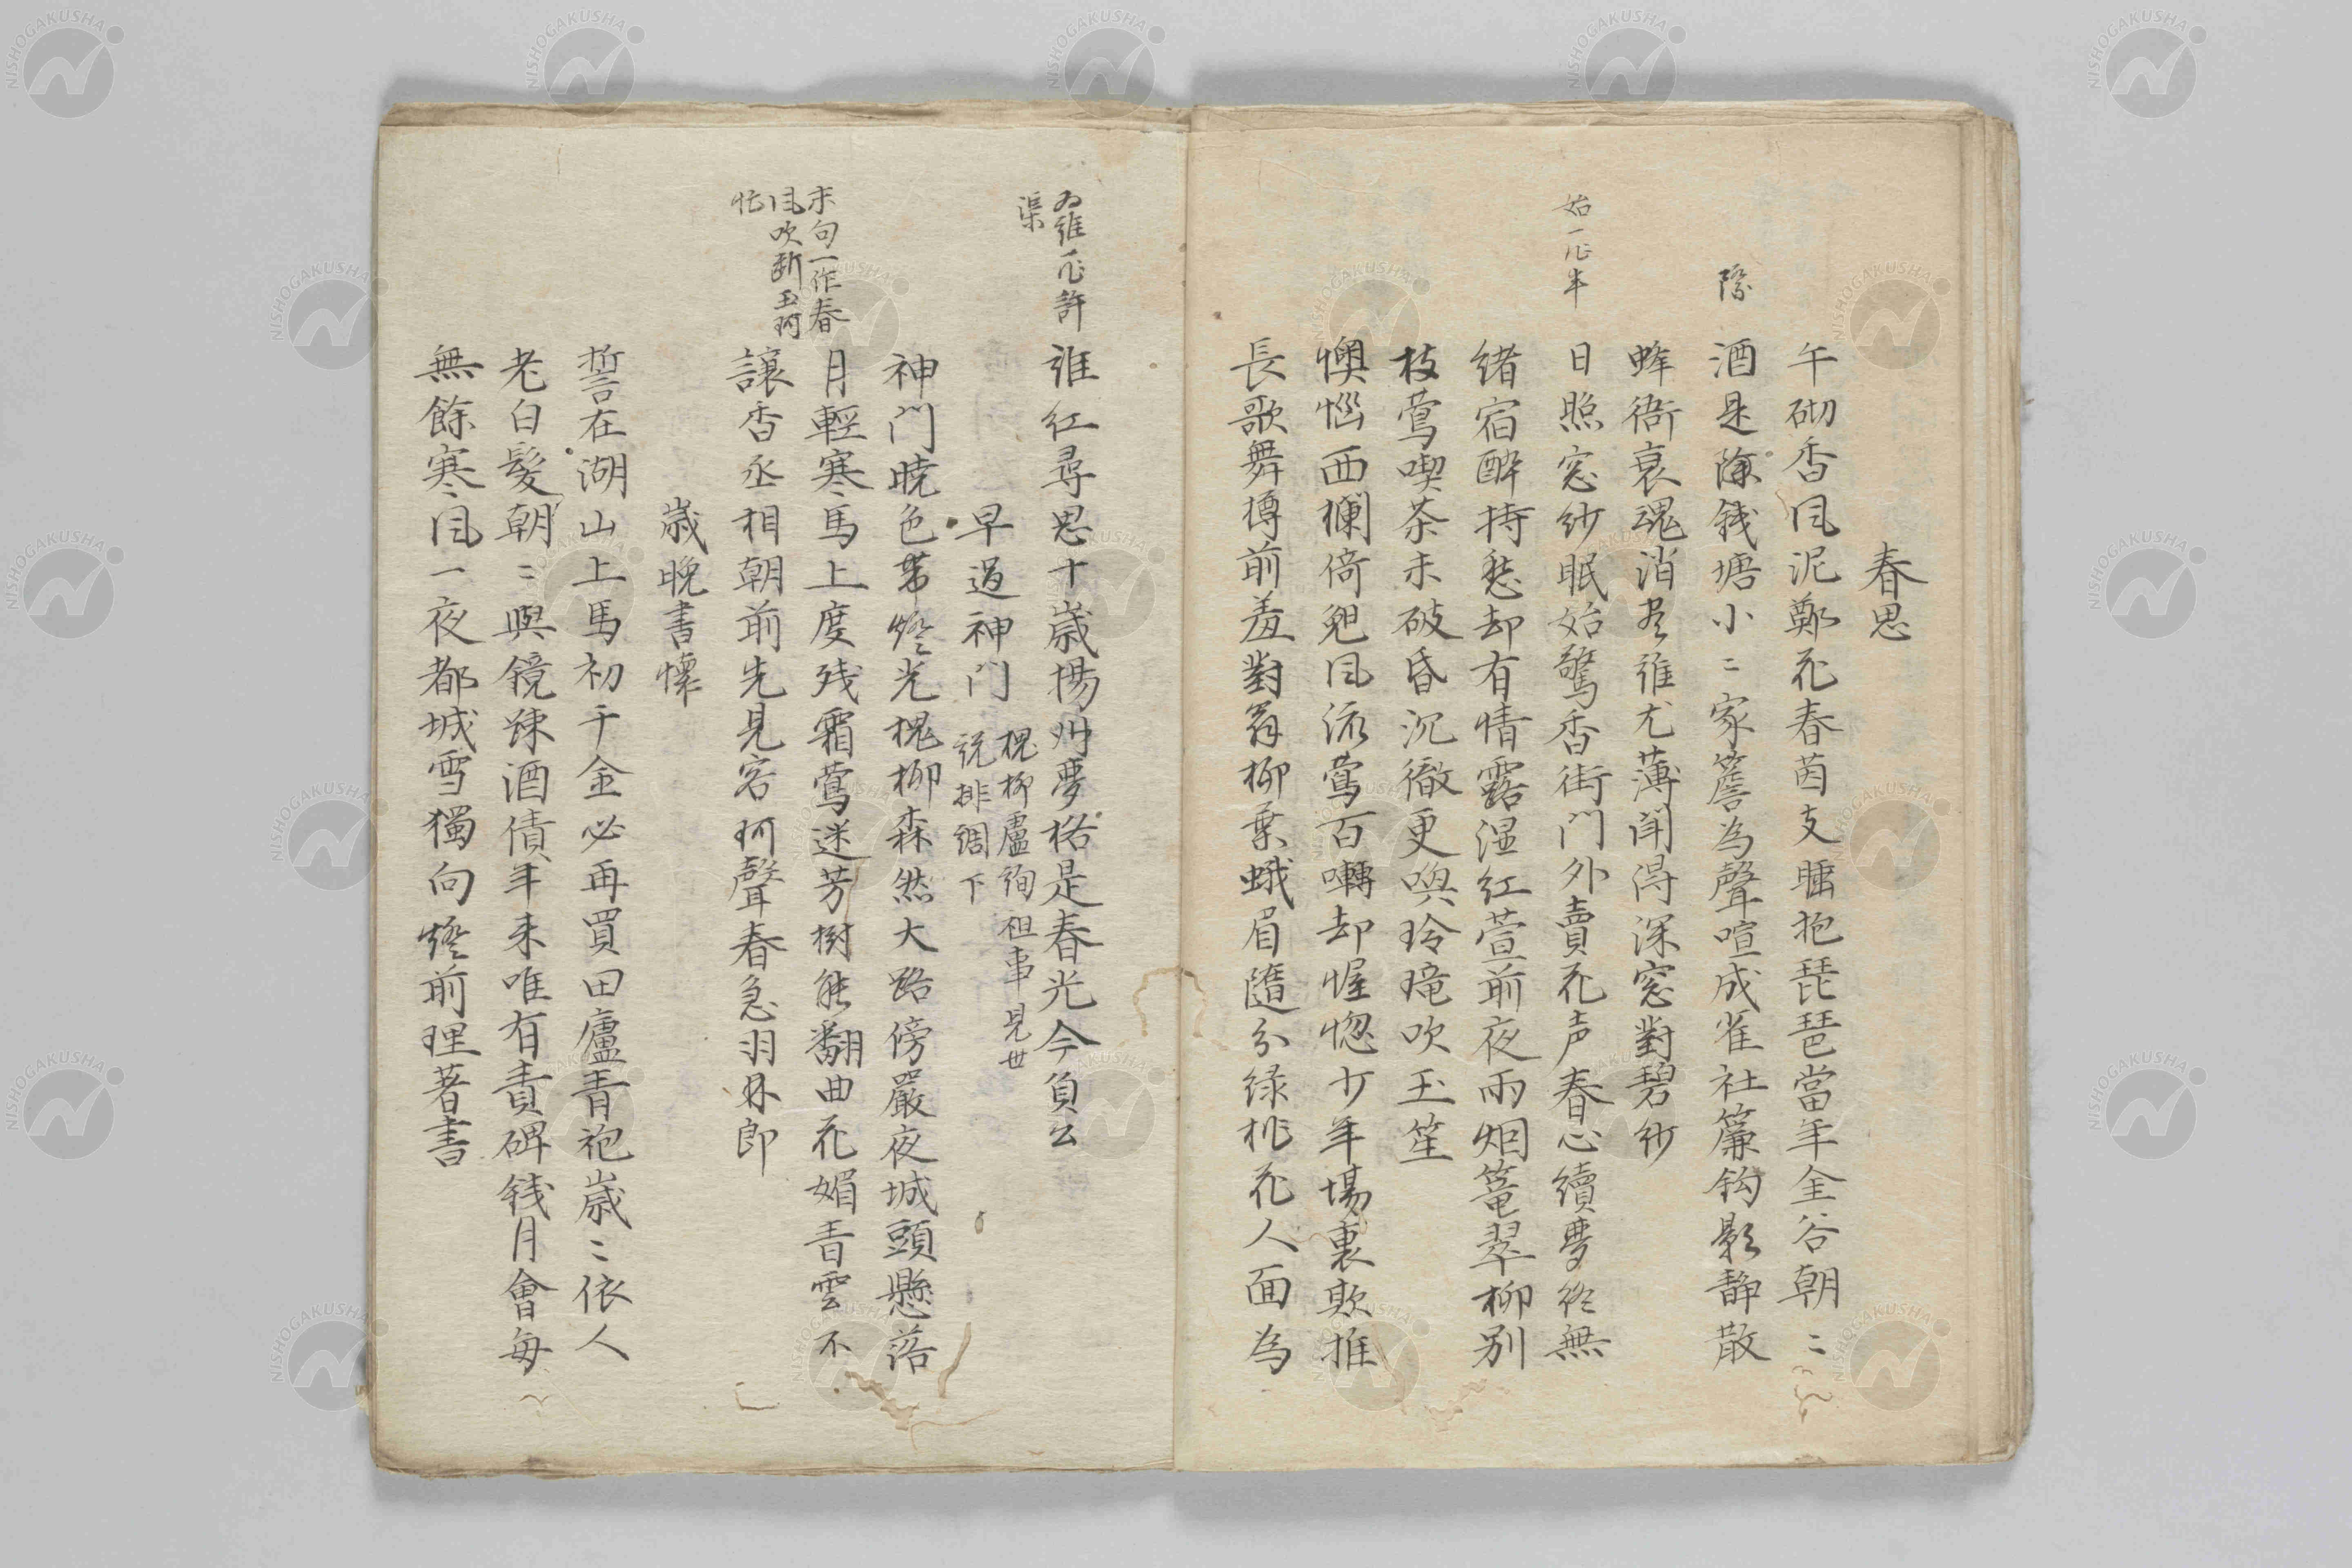 春思
午砌香風泥鄭花春茵支膃抱琵琶當年金谷朝〻
際
酒是除錢塘小〻家簷為聲喧成雀社簾鈎影静散
蜂衙衰魂消尽維尤薄閒得深窓對碧紗
始一作半
日照窓紗眠始驚香街門外賣花声春心續夢終無
緒宿酔持愁却有情露湿红萱前夜雨烟篭翠柳别
枝鶯喫茶未破昏沉徹更喚玲瓏吹玉笙
懊惱西欄倚兜風流鶯百囀却惺惚少年場裏欺推
長歌舞搏前羞對翁柳葉蛾眉随分绿桃花人面為
為維作許
渠
誰红尋思十歳楊州夢恰是春光今負公
早過神门
槐柳盧徇祖事見世
説排調下
神门暁色带燈光槐柳森然大路傍嚴夜城頭懸落
月輕寒馬上度残霜鶯迷芳樹能翻曲花媚青雲不
末句一作春
風吹断玉珂
忙
讓香丞相朝前先見客珂聲春急羽林郎
歳晩書懐
誓在湖山上馬初千金必再買田廬青袍歳〻依人
老白髪朝〻與鏡踈酒債年来唯有責碑銭月會毎
無餘寒風一夜都城雪獨向燈前理著書